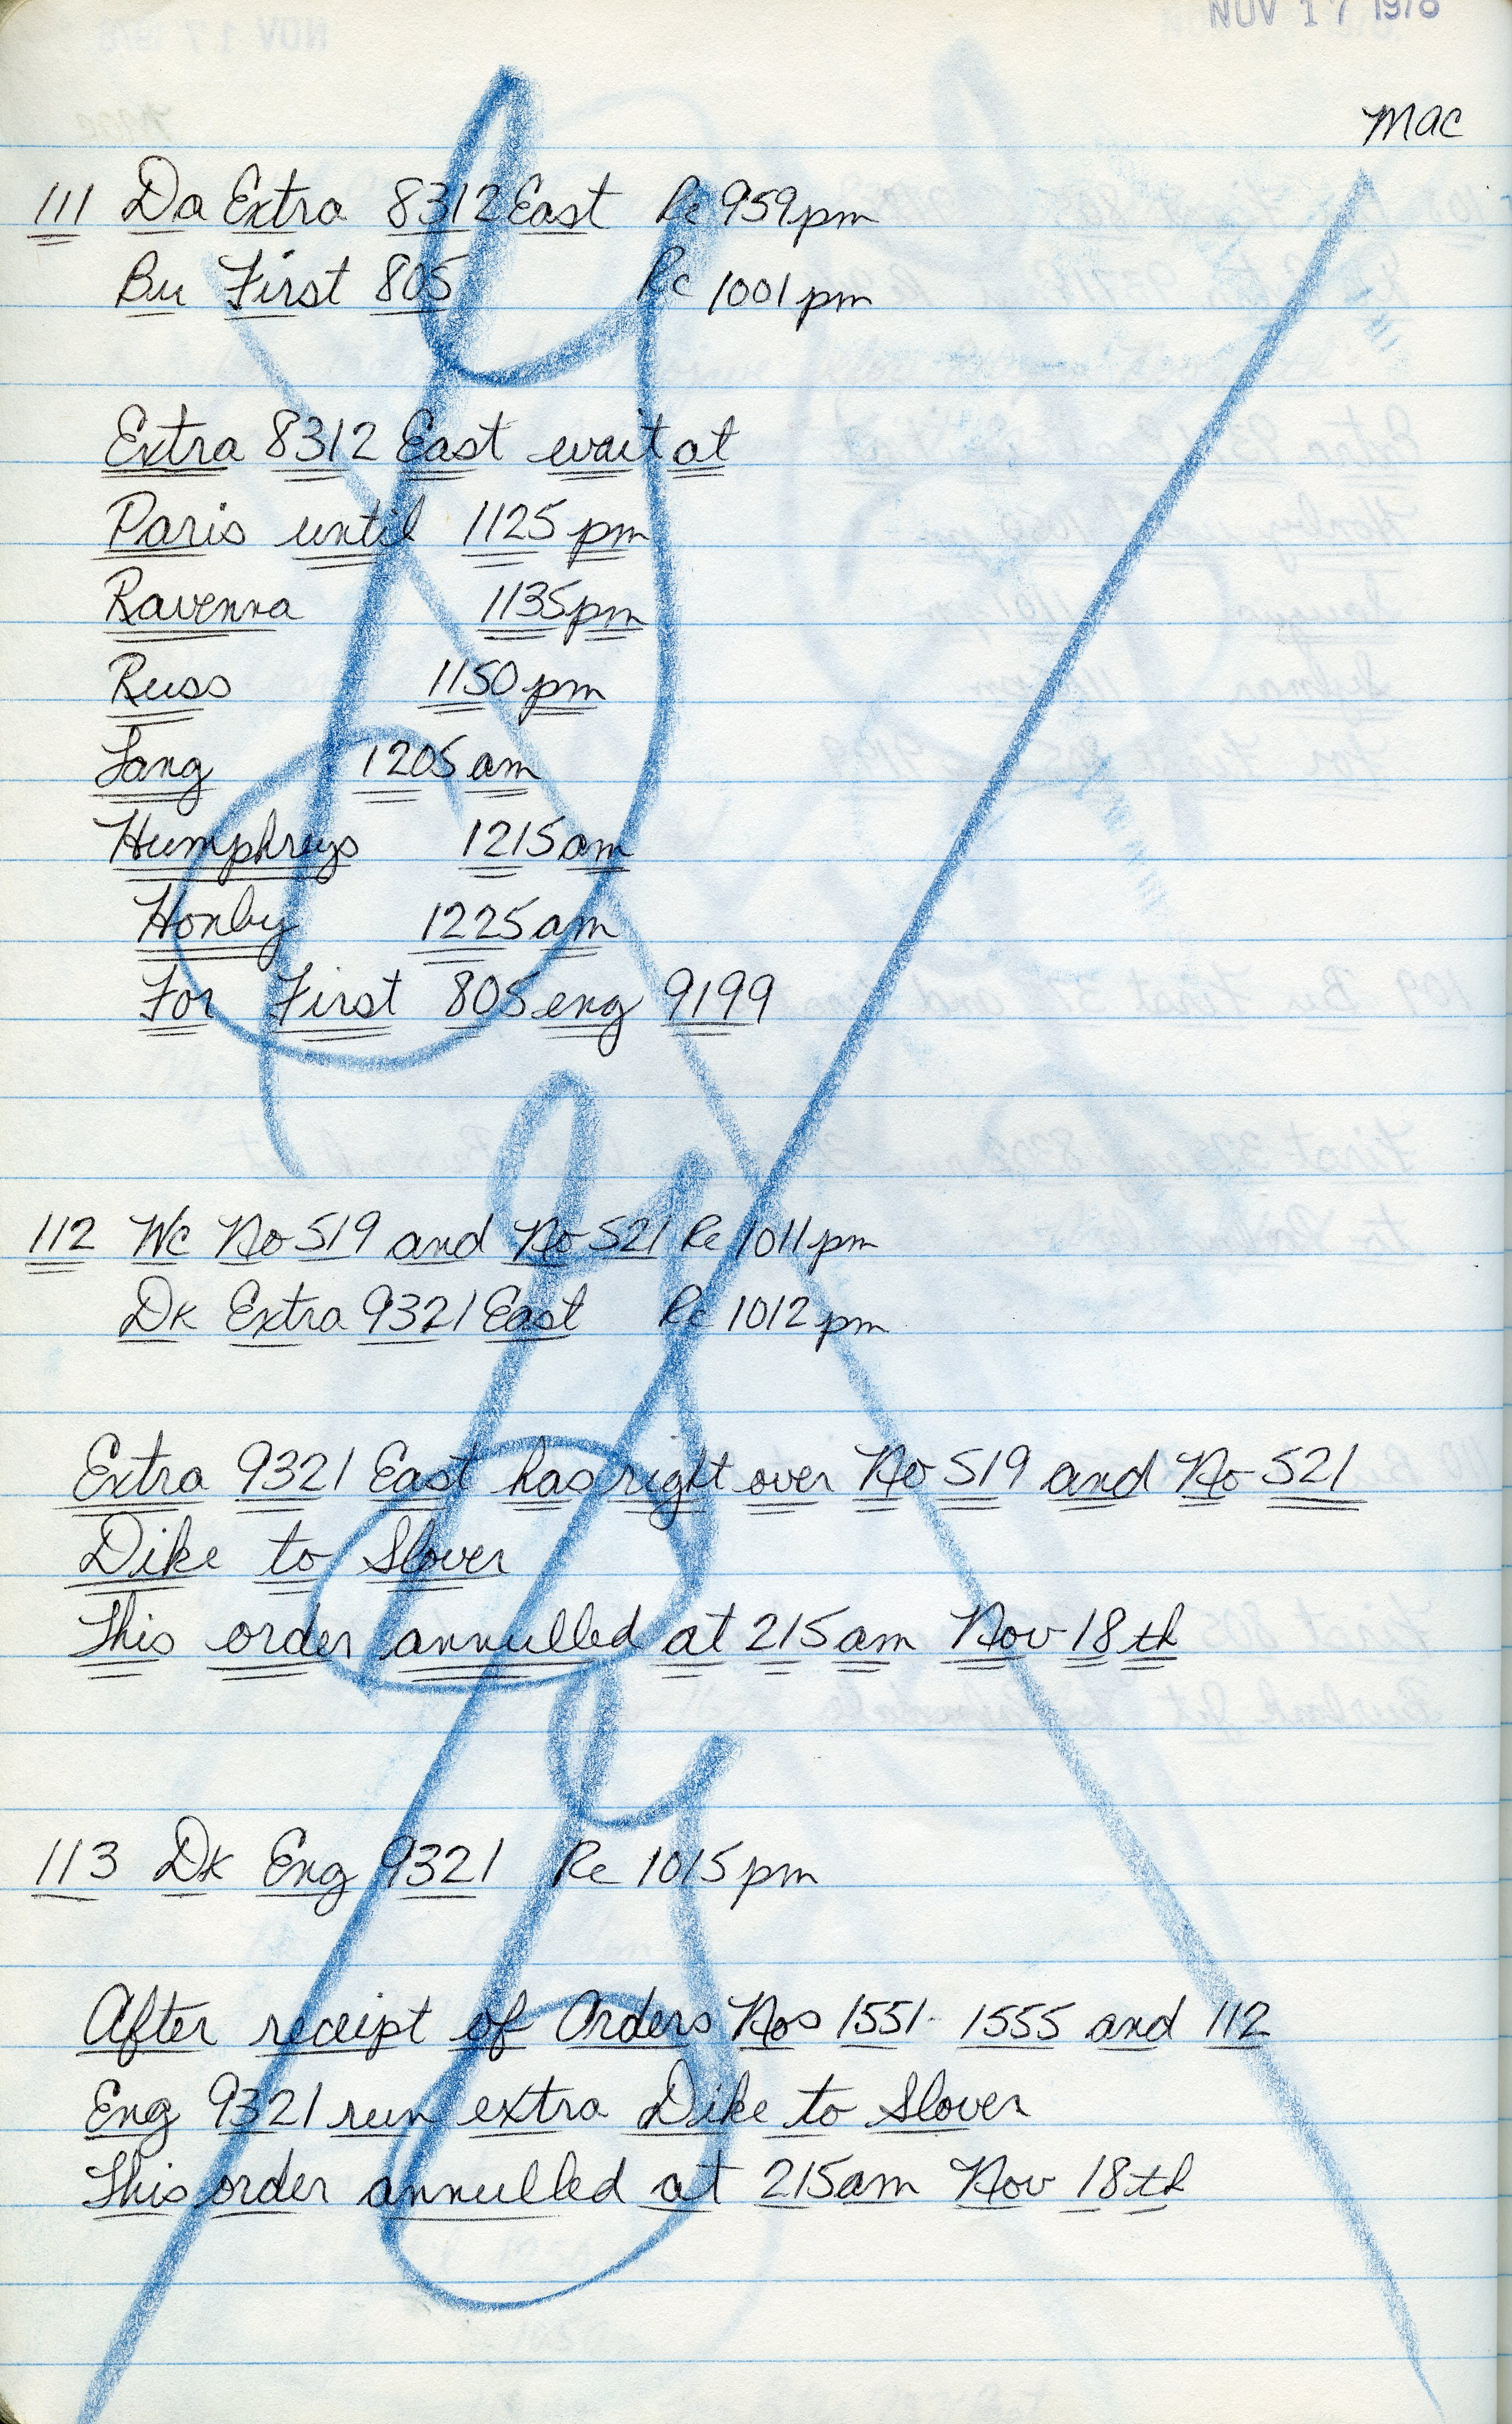 NOV 17 1978
mac
111 Da Extra 8312 East Rc 959pm
Bu First 805 Rc 1001pm
Extra 8312 East wait at
Paris until 1125pm
Ravenna 1135pm
Russ 1150pm
Lang 1205am
Humphreys 1215am
Honby 1225am
For First 805 eng 9199
112 Wc No 519 and No 521 Rc 1011pm
Dk Extra 9321 East Rc 1012pm
Extra 9321 East has right over No 519 and No 521
Dike to Slover
This order annulled at 215am Nov 18th
113 Dk Eng 9321 Rc 1015pm
After receipt of Orders Nos 1551 - 1555 and 112
Eng 9321 run extra Dike to Slover
This order annulled at 215am Nov 18th